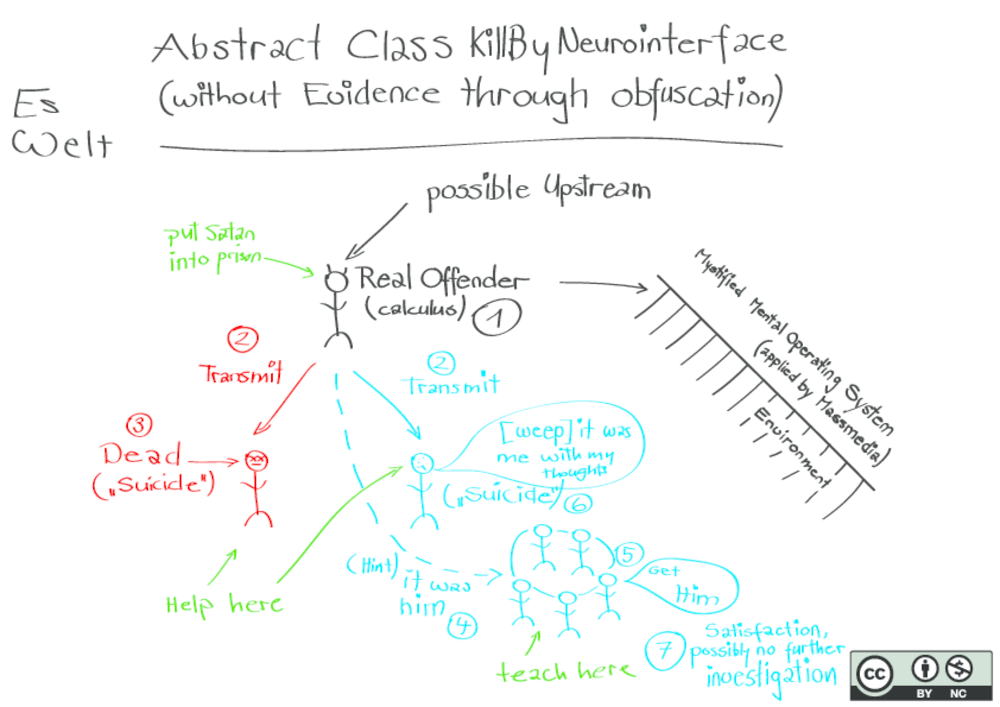 Abstract Class KillByNeurointerface
(without Evidence through obfuscation)
Es
Welt
possible Upstream
put Satan
into prison
Real Offender
(calculus) 1
Mystified Mental Operating System
(applied by Massmedia)
Environment
2
Transmit
2
Transmit
3
Dead
(„Suicide")
[weep] it was
me with my
thoughts
(„Suicide") 6
Help here
(Hint) it was
him 4
5
Get
Him
teach here
7 Satisfaction,
possibly no further
investigation
cc
BY NC